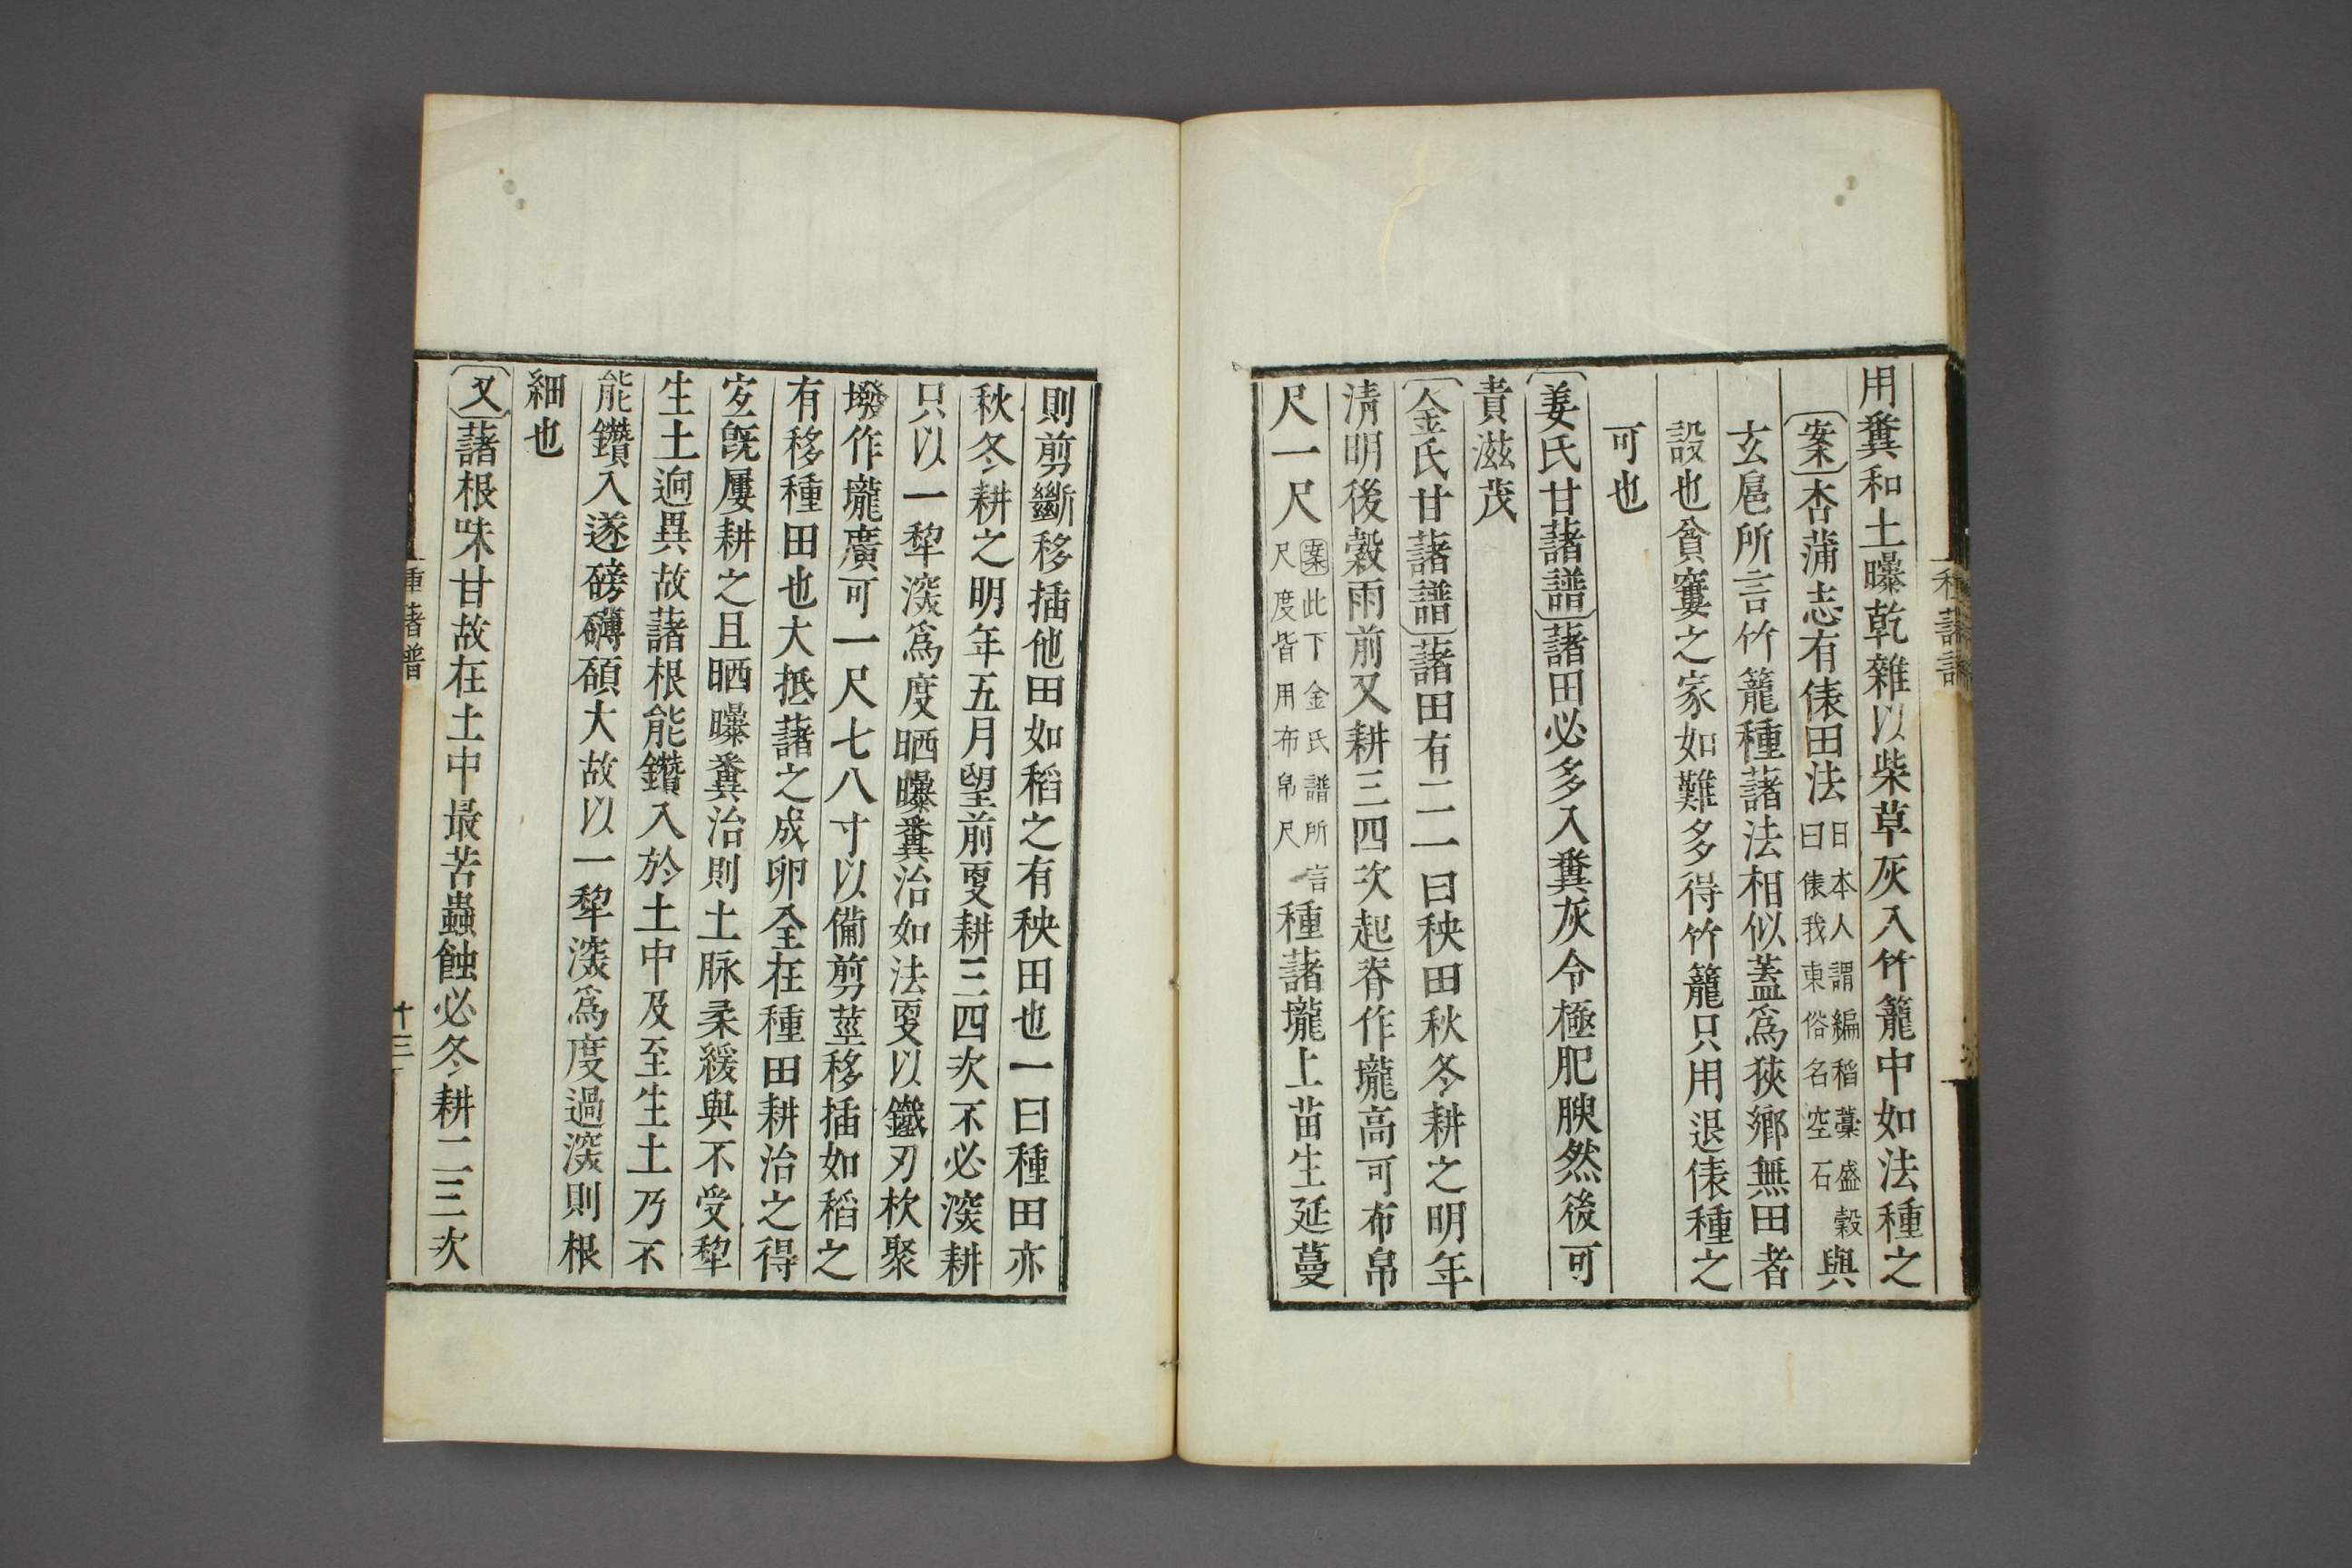 用糞和土曝乾雜以柴草灰入竹籠中如法種之
案杏蒲志有俵田法日本人謂編稻藁盛穀曰俵我東俗名空石與
玄扈所言竹籠種藷法相似蓋爲狹鄉無田者
設也貧窶之家如難多得竹籠只用退俵種之
可也
姜氏甘藷譜藷田必多入糞灰令極肥腴然後可
責滋茂
金氏甘藷譜藷田有二一曰秧田秋冬耕之明年
淸明後穀雨前又耕三四次起脊作壠高可布帛
尺一尺案此下金氏譜所言尺度皆用布帛尺種藷壠上苗生延蔓
則剪斷移插他田如稻之有秧田也一曰種田亦
秋冬耕之明年五月望前更耕三四次不必深耕
只以一犂深爲度晒曝糞治如法更以鐵刃杴聚
墢作壠廣可一尺七八寸以備剪莖移插如稻之
有移種田也大抵藷之成卵全在種田耕治之得
宜旣屢耕之且晒曝糞治則土脉柔緩與不受犂
生土逈異故藷根能鑽入於土中及至生土乃不
能鑽入遂磅礴碩大故以一犂深爲度過深則根
細也
又藷根味甘故在土中最苦蟲蝕必冬耕二三次
種藷譜
十三